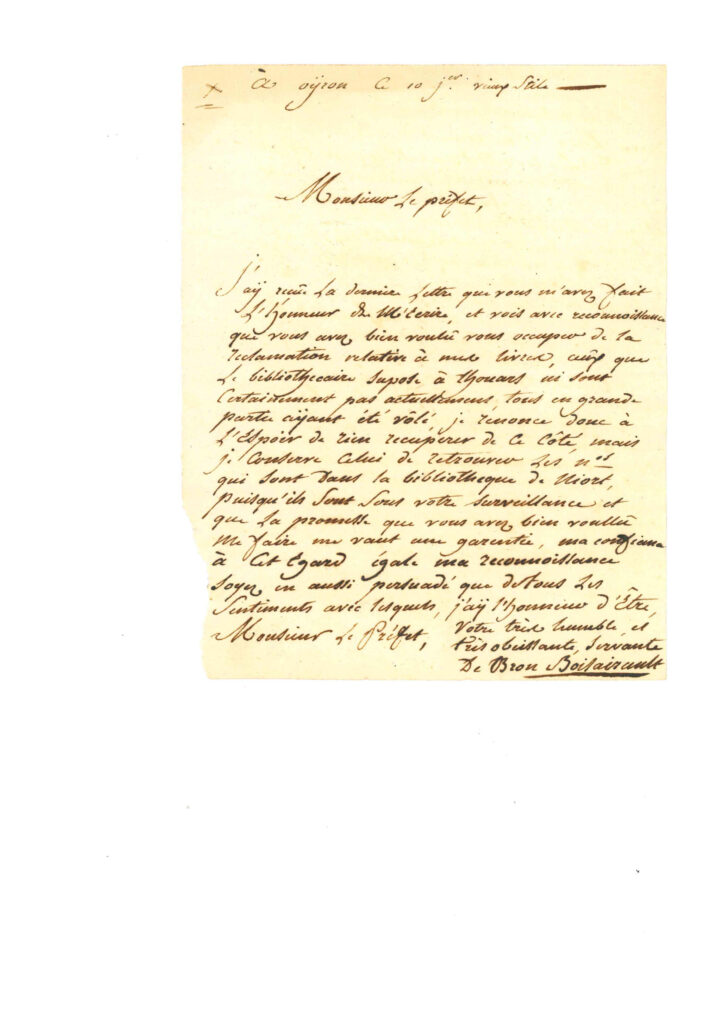 à oÿron ce 10 j.er vieux stile
Monsieur Le préfet,
j'aÿ reçûe La derniere Lettre que vous m'avez fait
L'honneur de M'écrire, et vois avec reconnoissance
que vous avez bien voulû vous occuper de la
reclamation relative à mes livres, ceux que
Le bibliothecaire supose à thouars ni sont
Certainement pas actuellement, tous en grande
partie aÿant été vôlé, je rénonce donc à
L'Espoir de rien recupérer de ce côté, mais
je Conserve Celui de retrouver Les nos
qui sont dans la bibliotheque de Niort,
puisqu'ils sont sous votre surveillance et
que La promesse que vous avez bien voullû
me faire me vaut une garentie, ma confiance
à Cet Egard égale ma reconnoissance
soyez en aussi persuadé que de tous Les
Sentiments avec lesquels, j'aÿ l'honneur d'Être,
Monsieur Le Préfet, Votre très humble, et
très obéissante, servante
De Bron Boisairault